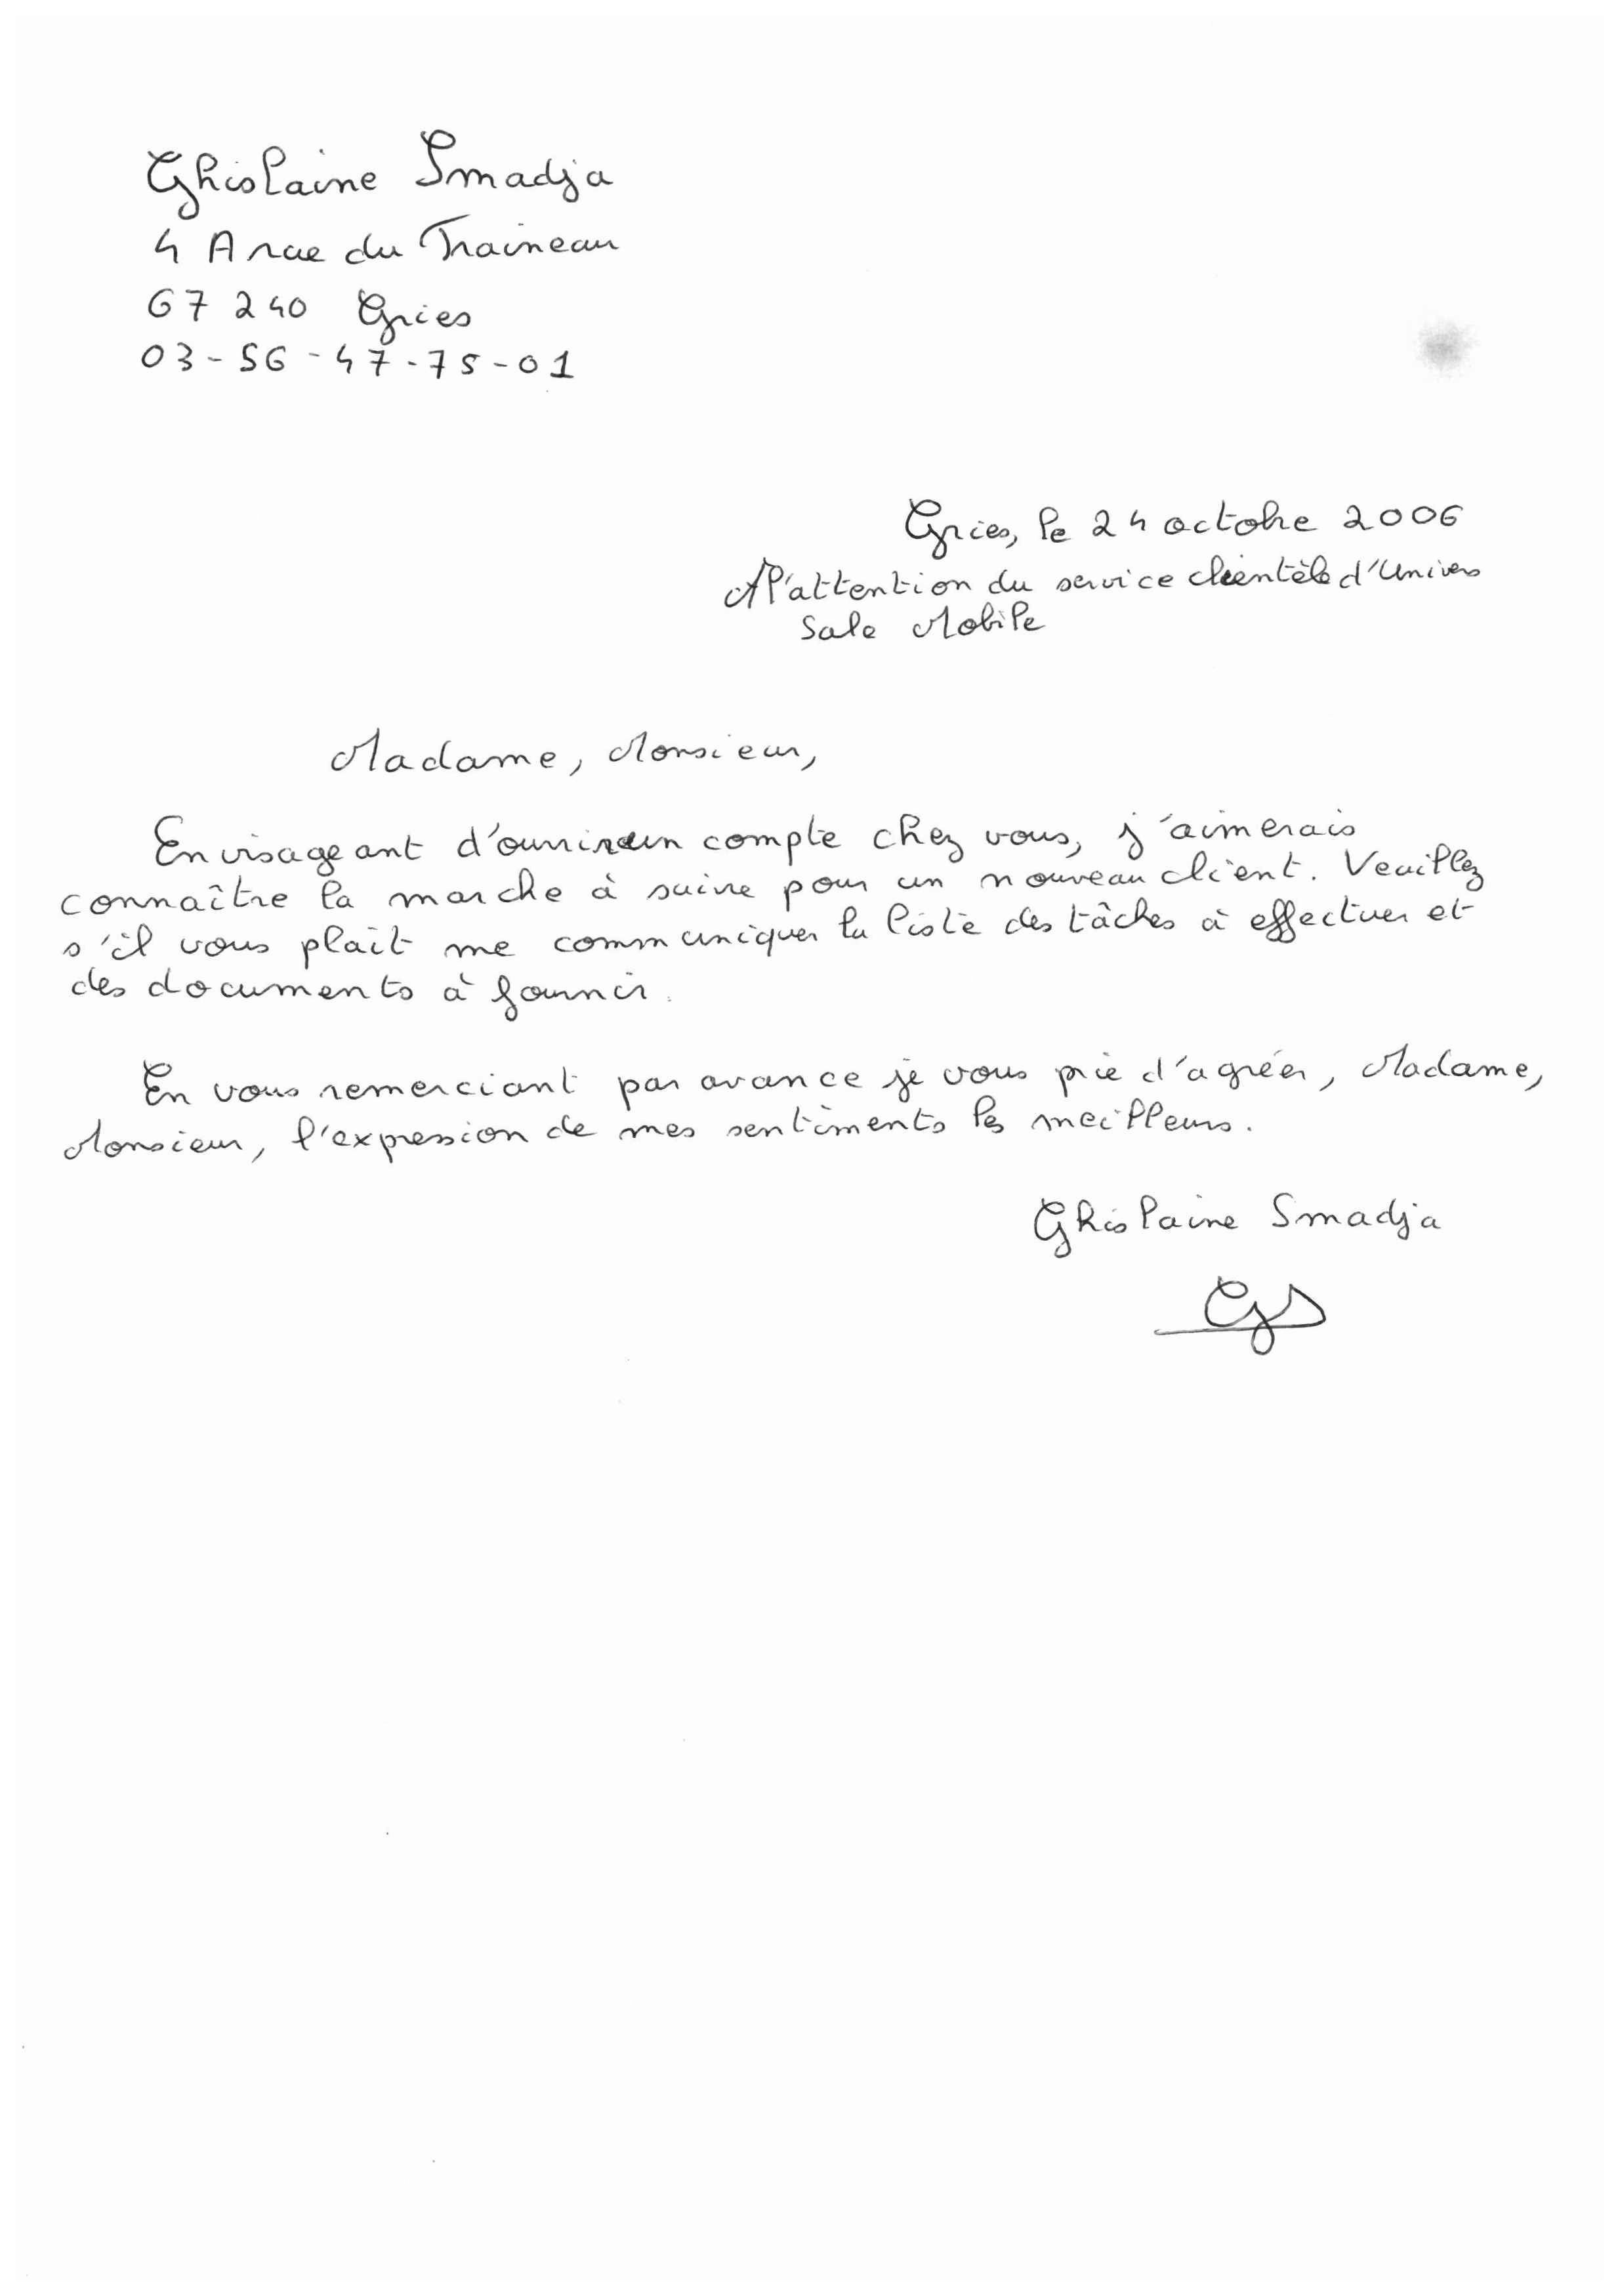 Ghislaine Smadja
4 A rue du Traineau
67 240 Gries
03-56-47-75-01
Gries, le 24 octobre 2006
A l'attention du service clientèle d'Univers
Sale Mobile
Madame, Monsieur,
Envisageant d'ouvrir un compte chez vous, j'aimerais
connaître la marche à suivre pour un nouveau client. Veuillez
s'il vous plait me communiquer la liste des tâches à effectuer et
des documents à fournir.
En vous remerciant par avance je vous prie d'agréer, Madame,
Monsieur, l'expression de mes sentiments les meilleurs.
Ghislaine Smadja
GS